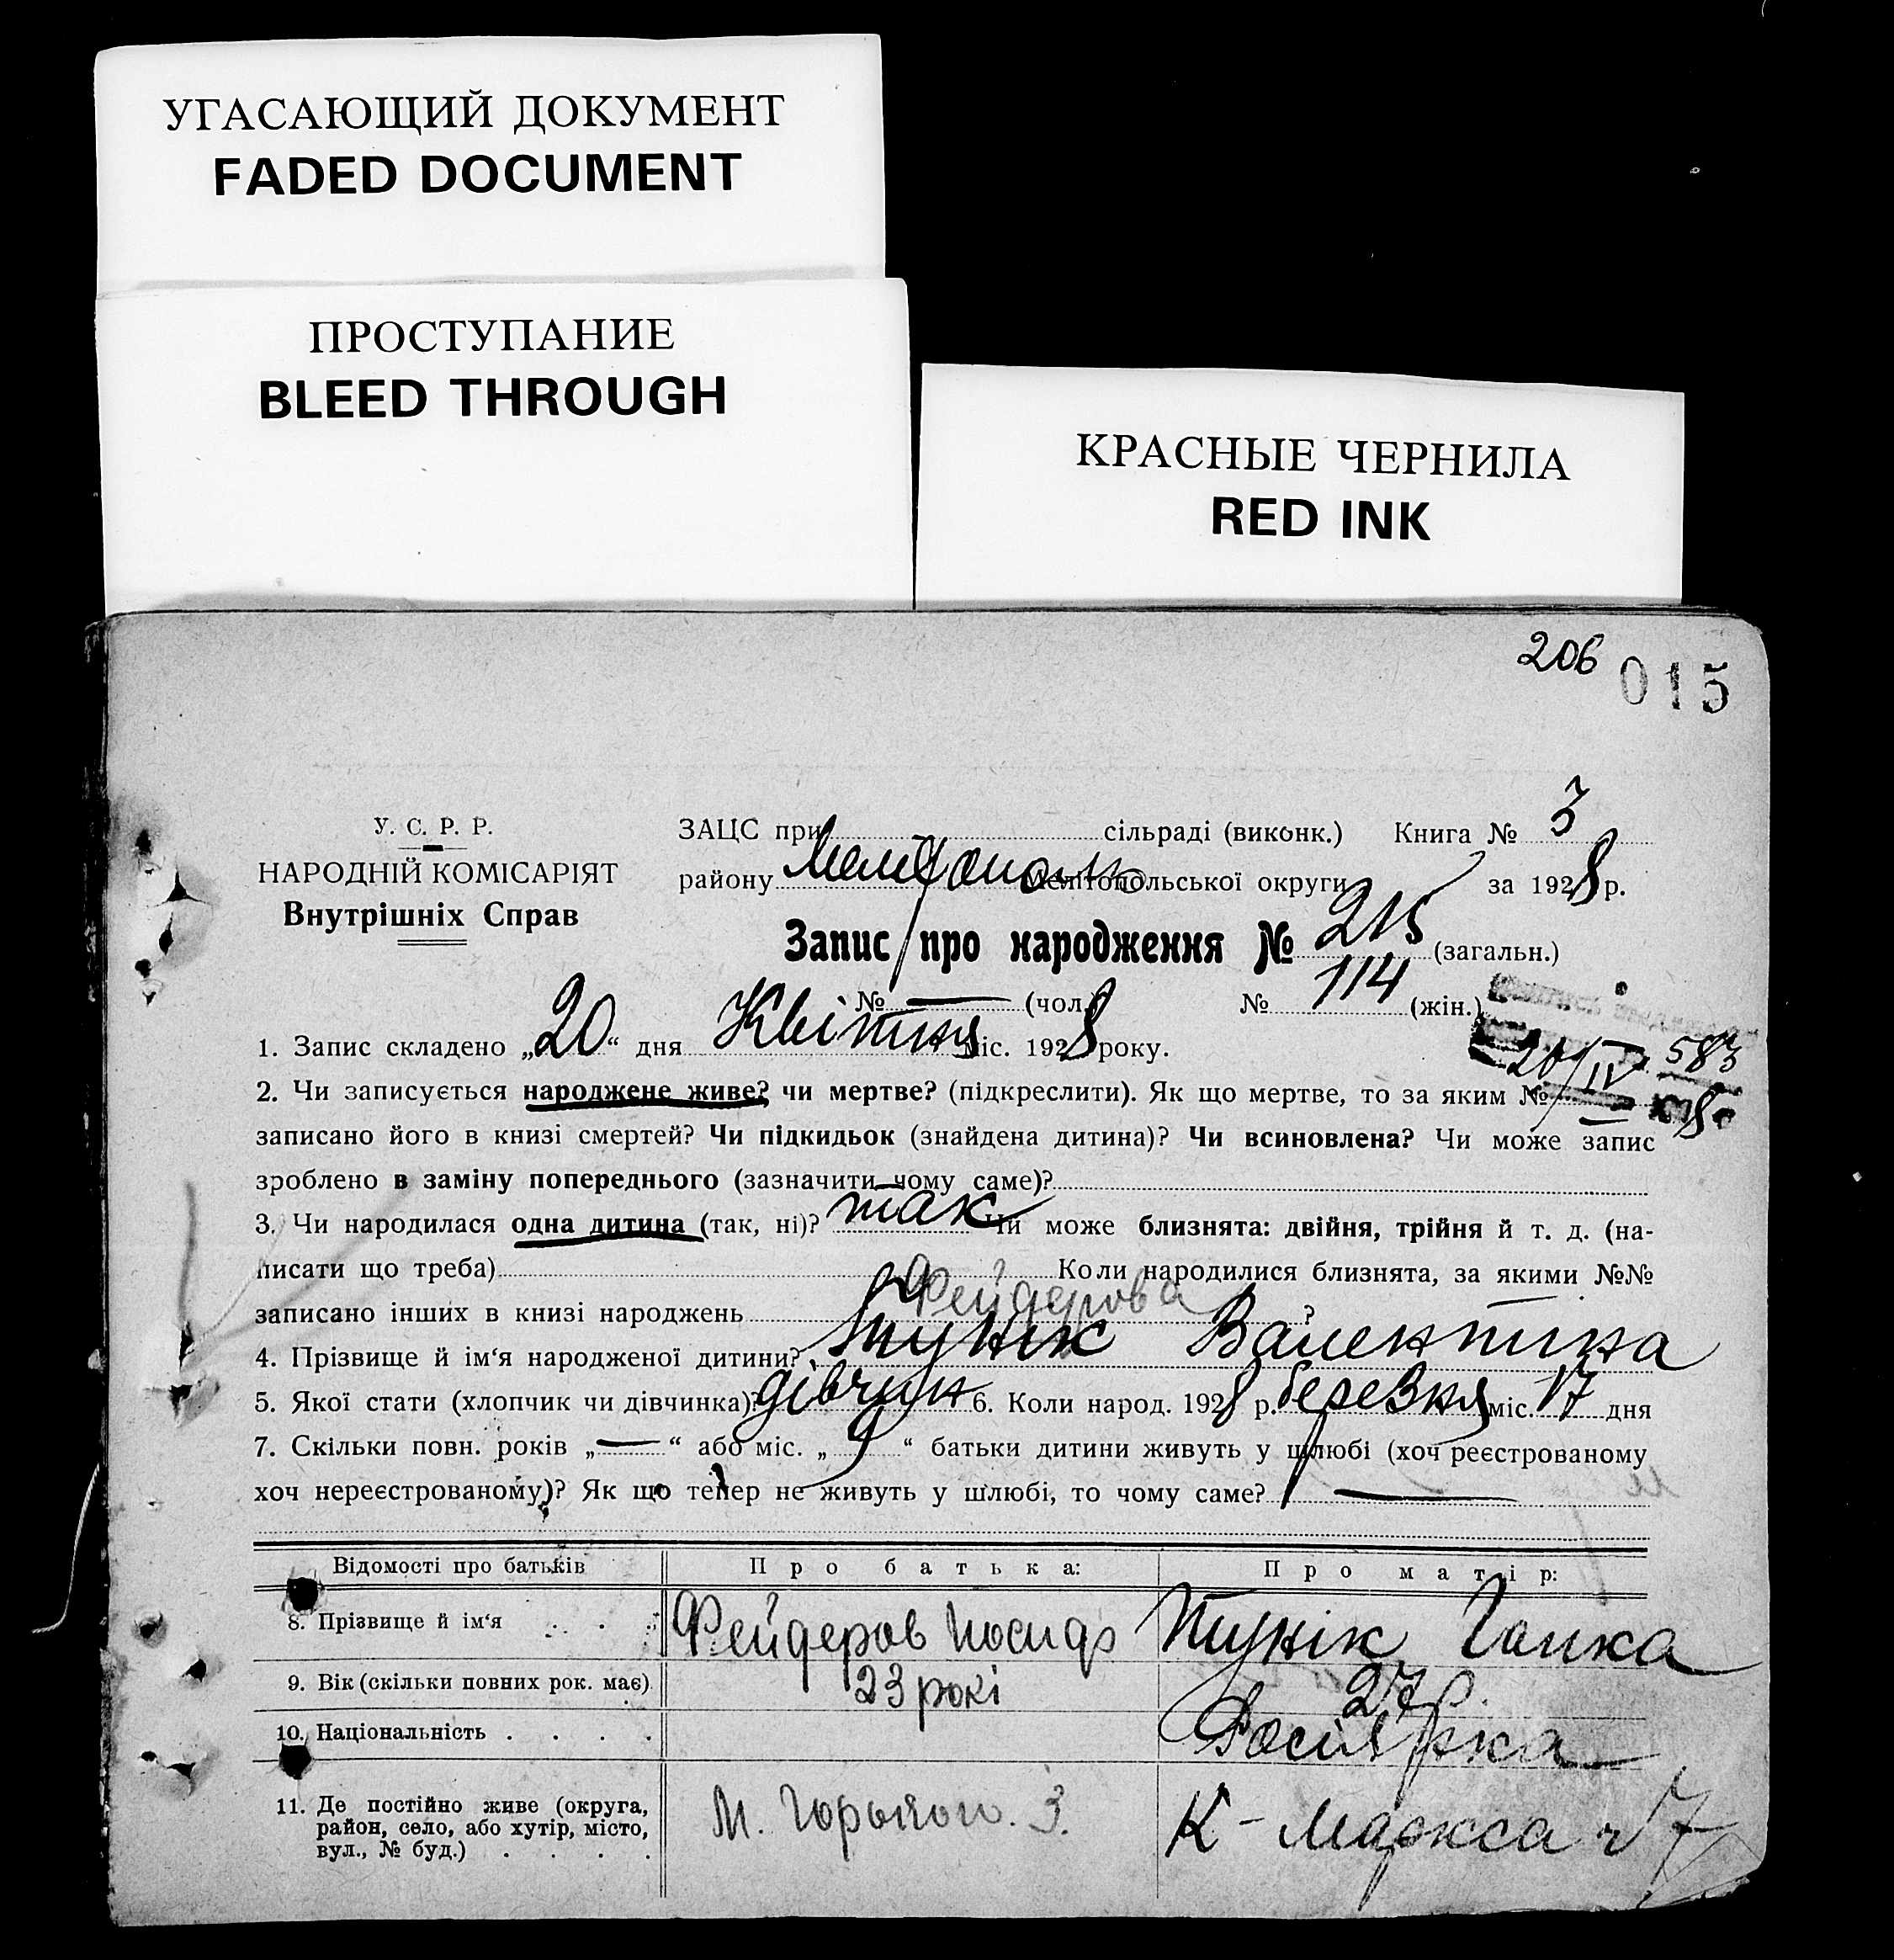 УГАСАЮЩИЙ ДОКУМЕНТ
FADED DOCUMENT
ПРОСТУПАНИЕ
BLEED THROUGH
КРАСНЫЕ ЧЕРНИЛА
RED INK
206 015
У. С. Р. Р.
НАРОДНІЙ КОМІСАРІЯТ
Внутрішніх Справ
ЗАЦС при сільраді (виконк.) Книга № 3
району Мелітополь Мелітопольської округи за 1928 р.
Запис про народження № 215 (загальн.)
№ — (чол.) № 114 (жін.)
1. Запис складено „20“ дня Квітня міс. 1928 року.
20/IV 583
8
2. Чи записується народжене живе? чи мертве? (підкреслити). Як що мертве, то за яким №
записано його в книзі смертей? Чи підкидьок (знайдена дитина)? Чи всиновлена? Чи може запис
зроблено в заміну попереднього (зазначити чому саме)?
3. Чи народилася одна дитина (так, ні)? так Чи може близнята: двійня, трійня й т. д. (на-
писати що треба) Коли народилися близнята, за якими №№
записано інших в книзі народжень ?
Фейдерова
4. Прізвище й ім‘я народженої дитини? Тунік Валентина
5. Якої стати (хлопчик чи дівчинка)? дівчин 6. Коли народ. 1928 р. березня міс. 17 дня
7. Скільки повн. років „—“ або міс. „9“ батьки дитини живуть у шлюбі (хоч реєстрованому
хоч нереєстрованому)? Як що тепер не живуть у шлюбі, то чому саме? —
Відомості про батьків Про батька: Про матір:
8. Прізвище й ім‘я . . . Фейдеров Иосиф Тунік Ганка
9. Вік (скільки повних рок. має) 23 рокі 27 р.
10. Національність . . . . Росіярка
11. Де постійно живе (округа,
район, село, або хутір, місто,
вул., № буд.) . . . .
М. Горького. 3.
К-Маркса 7